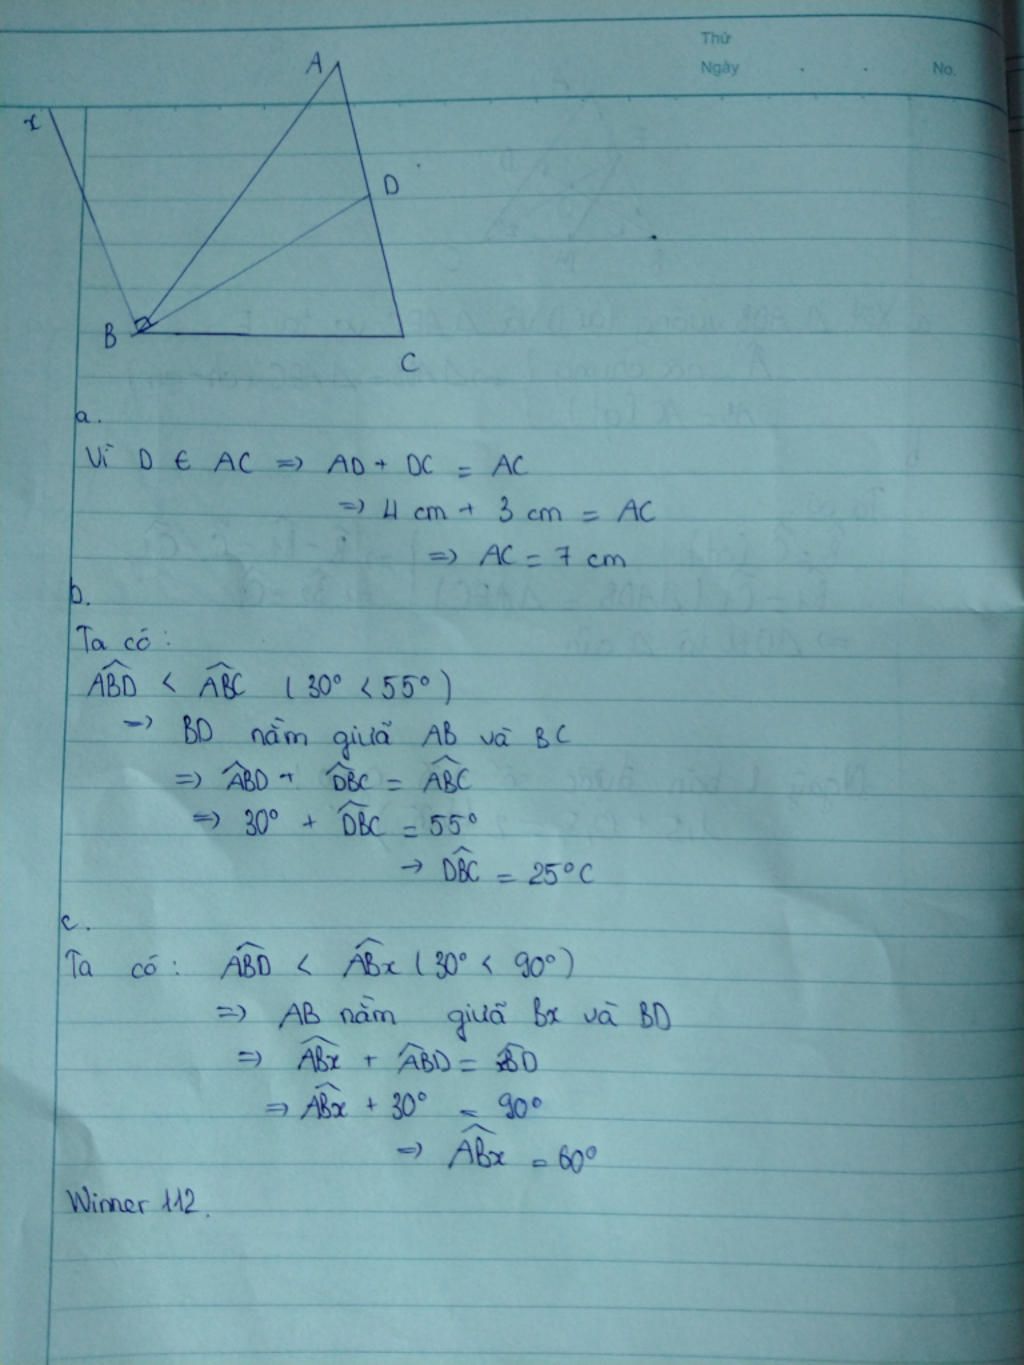 Thứ
Ngày . . No.
A
x
D
B
C
a.
Vì D ∈ AC => AD + DC = AC
=> 4 cm + 3 cm = AC
=> AC = 7 cm
b.
Ta có:
ABD̂ < ABĈ (30° < 55°)
=> BD nằm giữa AB và BC
=> ABD̂ + DBĈ = ABĈ
=> 30° + DBĈ = 55°
→ DBĈ = 25°C
c.
Ta có: ABD̂ < ABx̂ (30° < 90°)
=> AB nằm giữa Bx và BD
=> ABx̂ + ABD̂ = xBD̂
=> ABx̂ + 30° = 90°
=> ABx̂ = 60°
Winner 112.